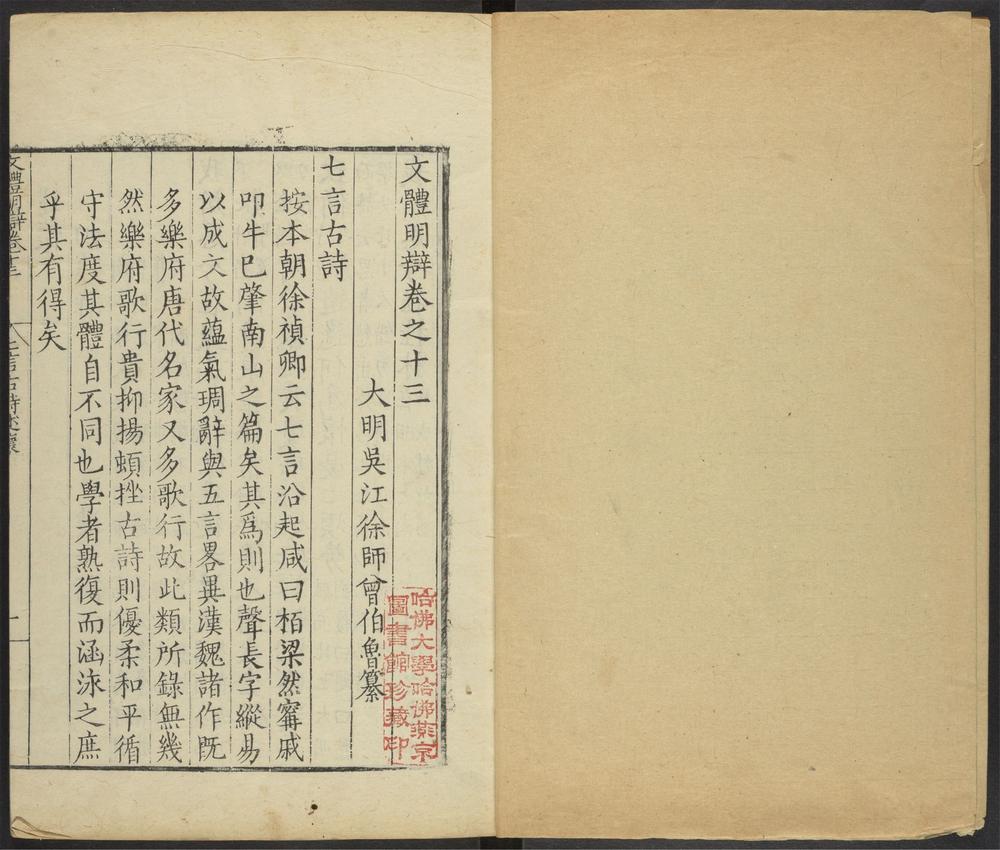 文體明辯卷之十三
大明吳江徐師曾伯魯纂
七言古詩
按本朝徐禎卿云七言沿起咸曰栢梁然甯戚
叩牛巳肇南山之篇矣其爲則也聲長字縱易
以成文故蘊氣琱辭與五言畧異漢魏諸作旣
多樂府唐代名家又多歌行故此類所錄無幾
然樂府歌行貴抑揚頓挫古詩則優柔和平循
守法度其體自不同也學者熟復而涵泳之庶
乎其有得矣
文體明辯卷十三
七言古詩述懷
一
哈佛大學哈佛燕京
圖書館珍藏印